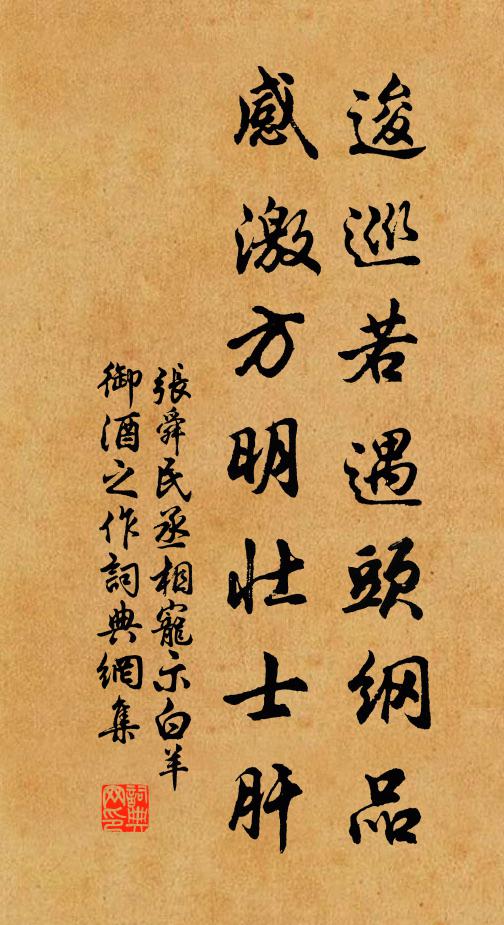 逡巡若遇頭綱品
感激方明壯士肝
張舜民丞相寵示白羊
御酒之作詞典網集
詞典
网印